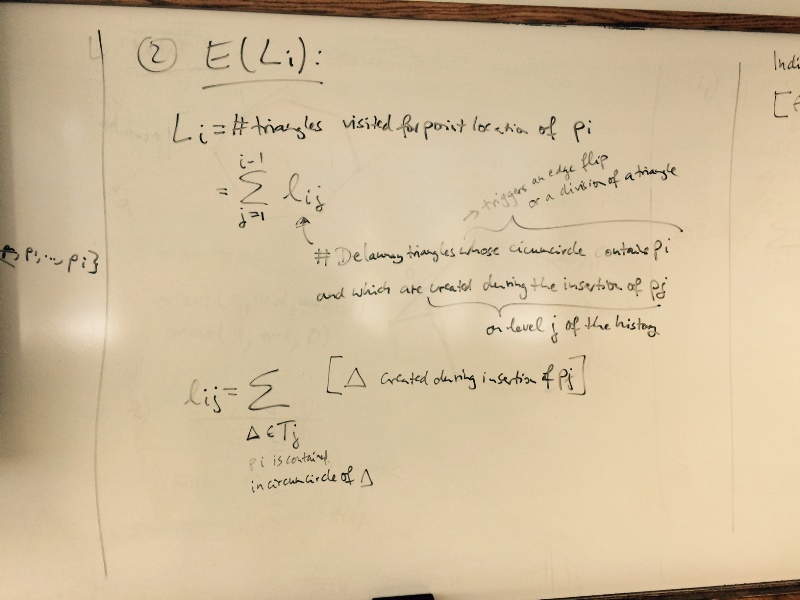 ② E(Li):
Li = # triangles visited for point location of pi
= Σ_{j=1}^{i-1} lij
→ triggers an edge flip
or a division of a triangle
# Delaunay triangles whose cicumcircle contains pi
and which are created during the insertion of pj
on level j of the history
lij = Σ [Δ created during insertion of pj]
Δ ∈ Tj
pi is contained
in circumcircle of Δ
pi, ..., pi}
Indi
[